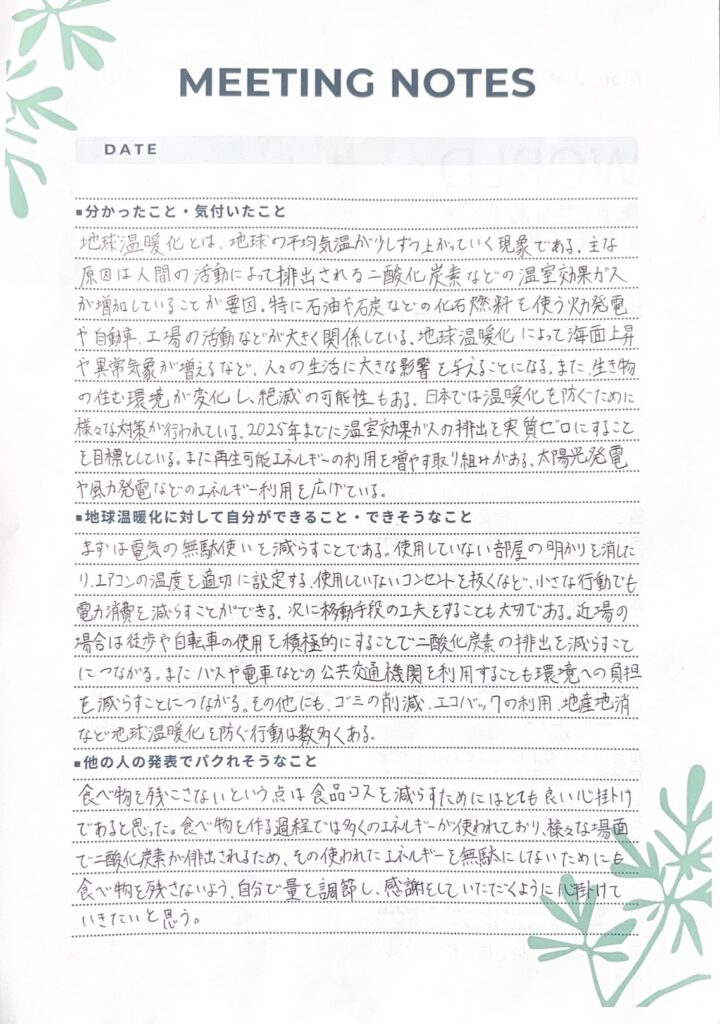 MEETING NOTES
DATE
■分かったこと・気付いたこと
地球温暖化とは、地球の平均気温が少しずつ上がっていく現象である。主な
原因は人間の活動によって排出される二酸化炭素などの温室効果ガス
が増加していることが要因。特に石油や石炭などの化石燃料を使う火力発電
や自動車、工場の活動などが大きく関係している。地球温暖化によって海面上昇
や異常気象が増えるなど、人々の生活に大きな影響を与えることになる。また、生き物
の住む環境が変化し、絶滅の可能性もある。日本では温暖化を防ぐために
様々な対策が行われている。2025年までに温室効果ガスの排出を実質ゼロにすること
を目標としている。また再生可能エネルギーの利用を増やす取り組みがある。太陽光発電
や風力発電などのエネルギー利用を広げている。
■地球温暖化に対して自分ができること・できそうなこと
まずは電気の無駄使いを減らすことである。使用していない部屋の明かりを消した
り、エアコンの温度を適切に設定する、使用していないコンセントを抜くなど、小さな行動でも
電力消費を減らすことができる。次に移動手段の工夫をすることも大切である。近場の
場合は徒歩や自転車の使用を積極的にすることで二酸化炭素の排出を減らすこと
につながる。またバスや電車などの公共交通機関を利用することも環境への負担
を減らすことにつながる。その他にも、ゴミの削減、エコバックの利用、地産地消
など地球温暖化を防ぐ行動は数多くある。
■他の人の発表でパクれそうなこと
食べ物を残こさないという点は食品ロスを減らすためにはとても良い心掛け
であると思った。食べ物を作る過程では多くのエネルギーが使われており、様々な場面
で二酸化炭素が排出されるため、その使われたエネルギーを無駄にしないためにも
食べ物を残さないよう、自分で量を調節し、感謝をしていただくように心掛けて
いきたいと思う。